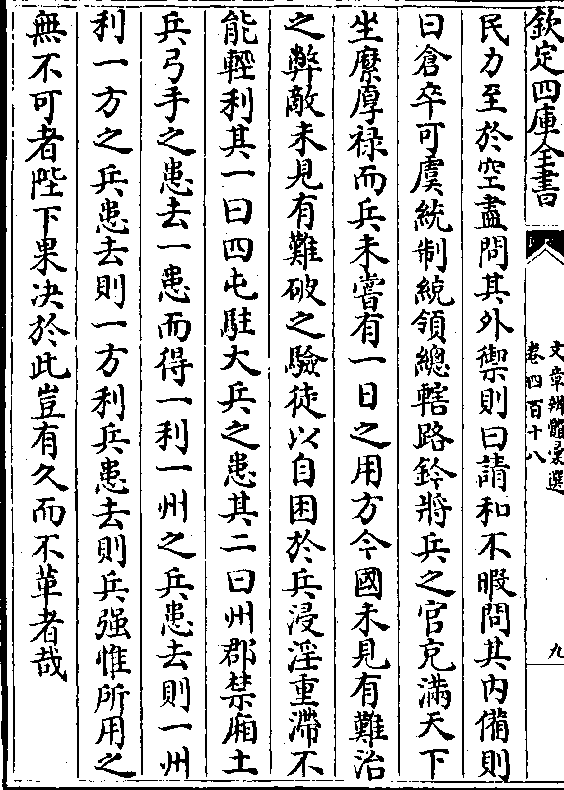 欽定四庫全書
文章辨體彙選
卷四百十八
九
民力至於空盡問其外禦則曰請和不暇問其内備則
曰倉卒可虞統制統領總轄路鈐將兵之官充滿天下
坐縻厚禄而兵未嘗有一日之用方今國未見有難治
之弊敵未見有難破之驗徒以自困於兵浸淫重滯不
能輕利其一曰四屯駐大兵之患其二曰州郡禁廂土
兵弓手之患去一患而得一利一州之兵患去則一州
利一方之兵患去則一方利兵患去則兵强惟所用之
無不可者陛下果决於此豈有久而不革者哉